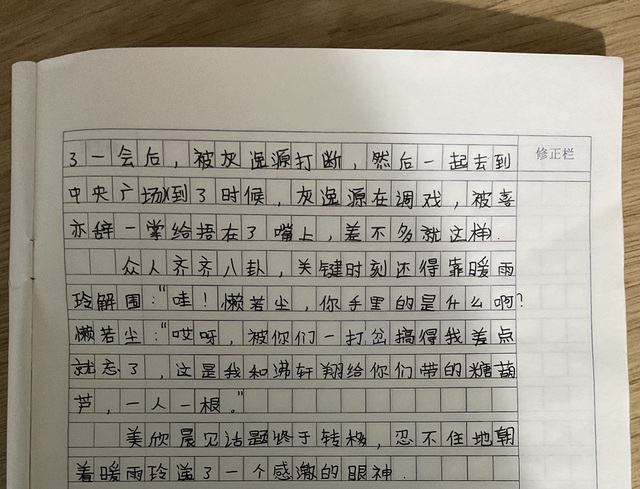 了一会后，被灰逸源打断，然后一起去到
修正栏
中央广场(到了时候，灰逸源在调戏，被喜
亦辞一掌给捂在了嘴上，差不多就这样.
众人齐齐八卦，关键时刻还得靠暖雨
玲解围："哇！懒若尘，你手里的是什么啊?
懒若尘："哎呀，被你们一打岔搞得我差点
就忘了，这是我和沸轩翔给你们带的糖葫
芦，一人一根。"
美欣晨见话题终于转移，忍不住地朝
着暖雨玲递了一个感激的眼神.